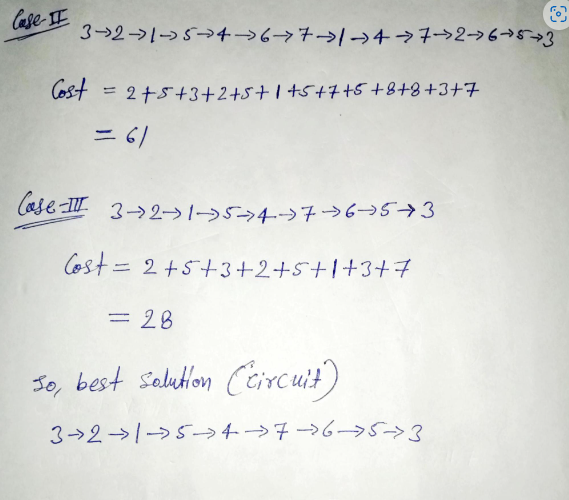 Case-II 3→2→1→5→4→6→7→1→4→7→2→6→5→3
Cost = 2+5+3+2+5+1+5+7+5+8+8+3+7
= 61
Case-III 3→2→1→5→4→7→6→5→3
Cost = 2+5+3+2+5+1+3+7
= 28
So, best solution (circuit)
3→2→1→5→4→7→6→5→3